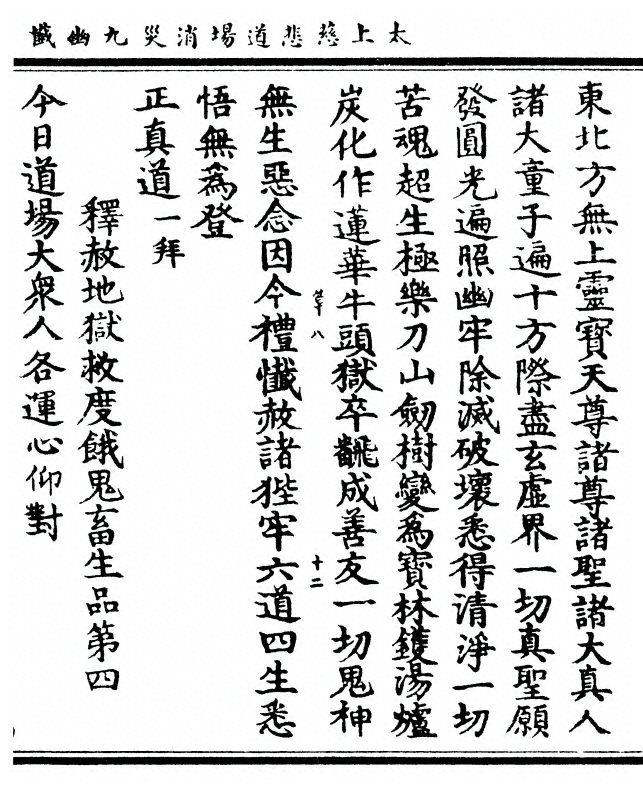 太上慈悲道場消災九幽懺
東北方無上靈寶天尊諸尊諸聖諸大真人
諸大童子遍十方際盡玄虛界一切真聖願
發圓光遍照幽牢除滅破壞悉得清淨一切
苦魂超生極樂刀山劒樹變爲寶林鑊湯爐
炭化作蓮華牛頭獄卒飜成善友一切鬼神
八 十二
無生惡念因今禮懺赦諸狴牢六道四生悉
悟無爲登
正真道一拜
釋赦地獄救度餓鬼畜生品第四
今日道場大衆人各運心仰對